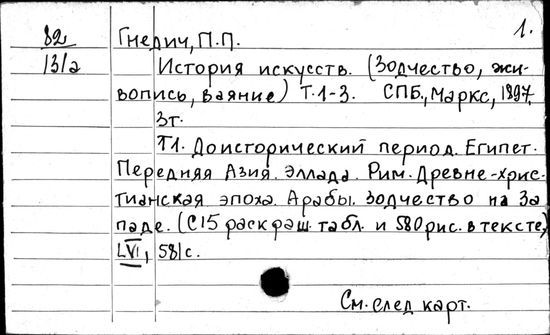 1.
82 Гнедич, П.П.
131а История искусств. (Зодчество, жи-
вопись, ваяние) Т.1-3. СПБ., Маркс, 1897,
3т.
Т1. Доисторический период. Египет.
Передняя Азия. Эллада. Рим. Древне-хрис-
тианская эпоха. Арабы. Зодчество на За
паде. (С 15 раскраш. табл. и 580 рис. в тексте,)
LVI, 581с.
См. след карт.